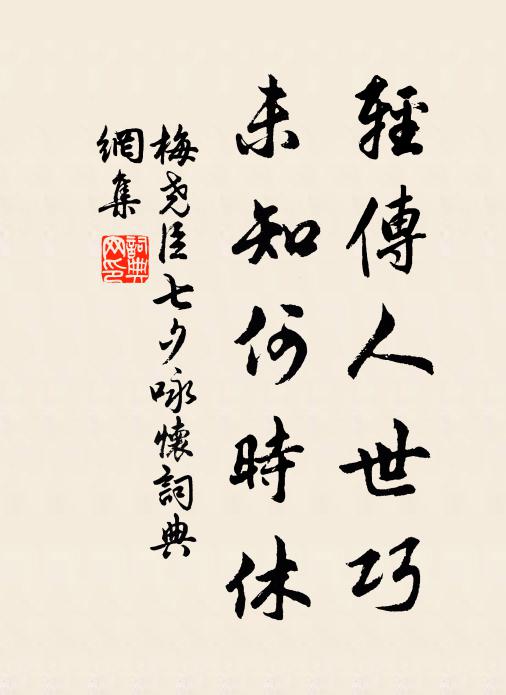 輕傳人世巧
未知何時休
梅尧臣七夕咏懷詞典
網集
詞典
网印